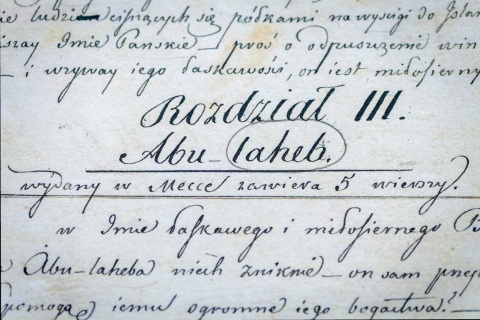 ludzi cisnących się półkami na wyścigi do Islam
Imie Pańskie – proś o odpuszczenie win
– i wzyway iego łaskawości, on iest miłosierny
Rozdział III.
Abu-laheb.
wydany w Mecce zawiera 5 wierszy.
w Imie łaskawego i miłosiernego B
Abu-laheba niech zniknie – on sam
pomogą iemu ogromne iego bogactwa?